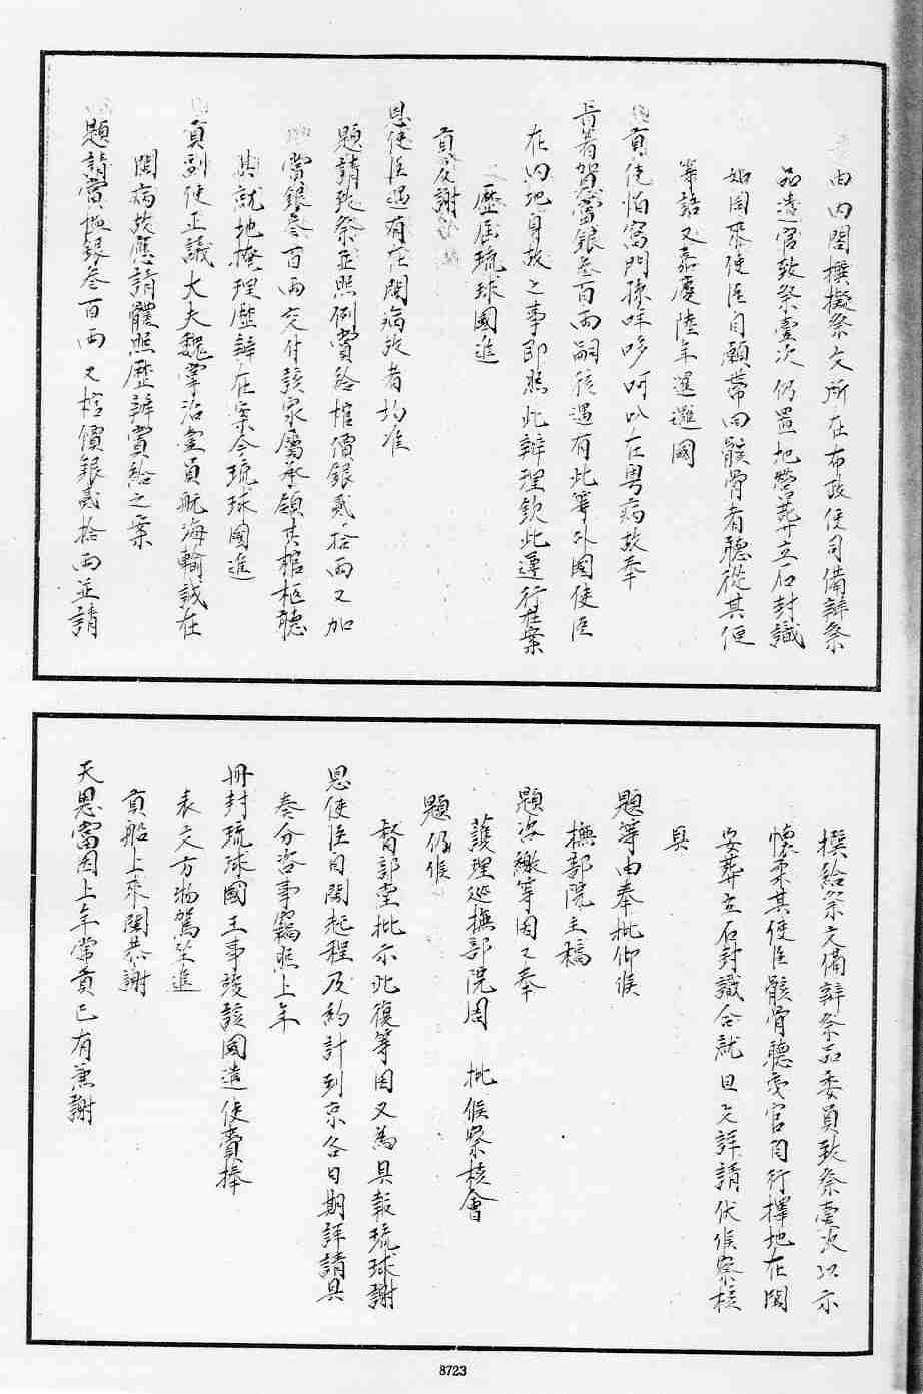 由内閣撰擬祭文所在布政使司備辦祭
品遣官致祭壹次仍置地營葬立石封識
如同來使臣自願帶回骸骨者聽從其便
等語又嘉慶陸年暹邏國
貢使怕窩們孫哖哆呵叭在粤病故奉
旨著賞銀叁百兩嗣後遇有此等外國使臣
在内地身故之事即照此辦理欽此遵行在案
歷屆琉球國進
貢及謝
恩使臣遇有在閩病故者均准
題請致祭並照例賞給棺價銀貳拾兩又加
賞銀叁百兩交付該家屬承領其棺柩聽
其就地掩理歷辦在案今琉球國進
貢副使正議大夫魏掌治奎貢航海輸誠在
閩病故應請體照歷辦賞給之案
題請賞恤銀叁百兩又棺價銀貳拾兩並請
撰給祭文備辦祭品委員致祭壹次以示
懷柔其使臣骸骨聽委官同行擇地在閩
安葬立石封識合就具文詳請伏候察核
具
題等由奉批仰候
撫部院主稿
題咨繳等因又奉
護理巡撫部院周 批候察核會
題仍候
督部堂批示此復等因又為具報琉球謝
恩使臣自閩起程及約計到京各日期詳請具
奏分咨事竊照上年
冊封琉球國王事竣該國遣使賫捧
表文方物駕坐進
貢船上來閩恭謝
天恩當因上年常貢已有蕉謝
8723